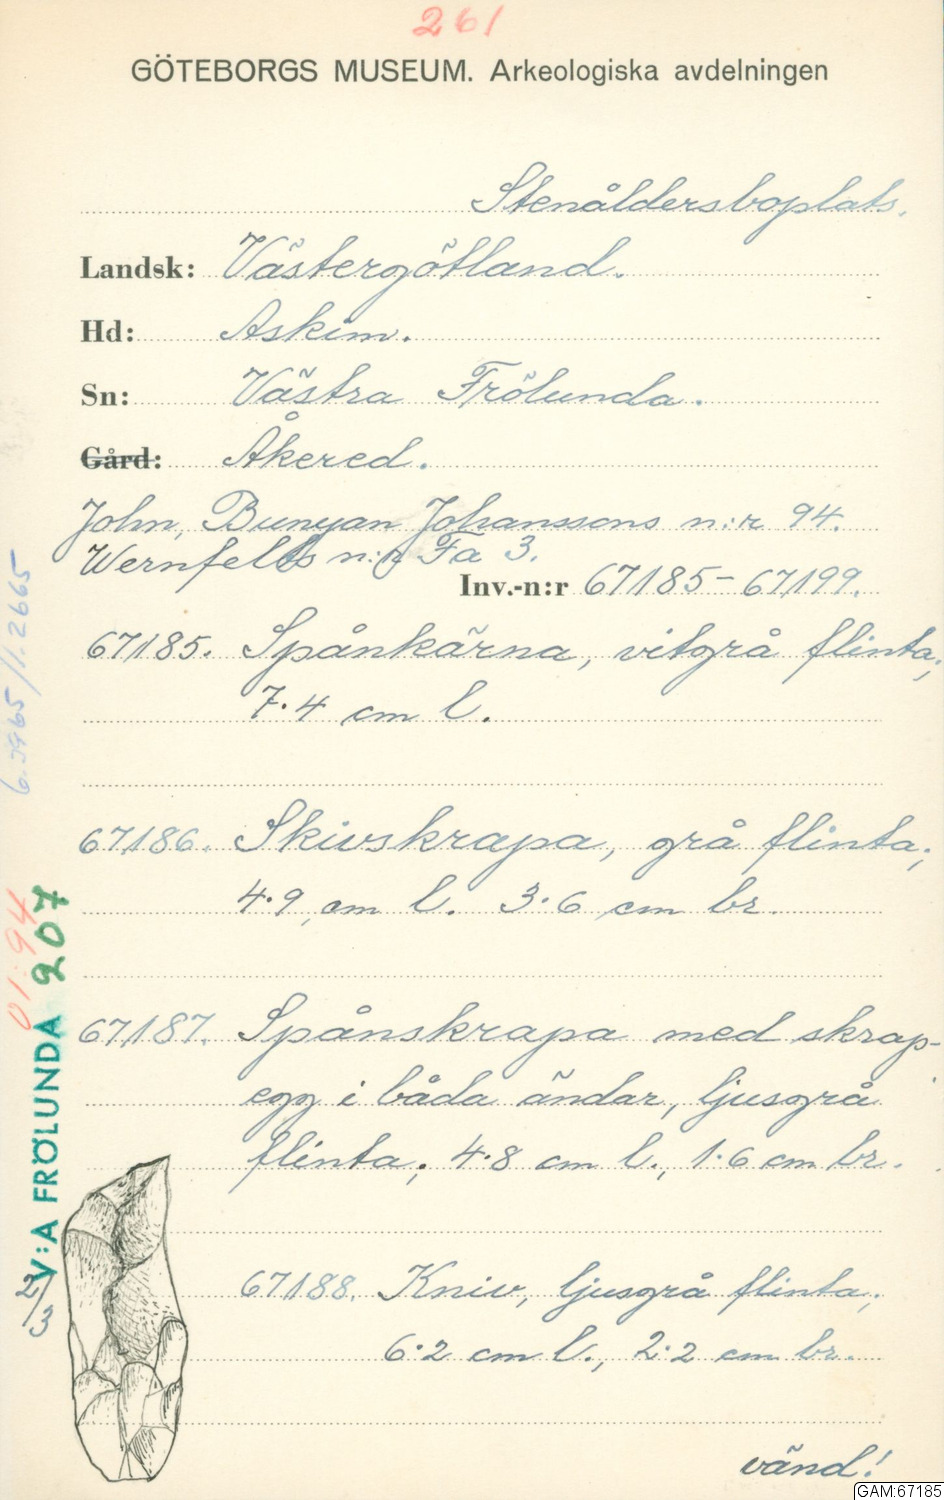 261
GÖTEBORGS MUSEUM. Arkeologiska avdelningen
Stenåldersboplats.
Landsk: Västergötland.
Hd: Askim.
Sn: Västra Frölunda.
Gård: Åkered.
John, Bunyan Johanssons n:r 94.
Wernfelts n:r Fa 3.
Inv.-n:r 67185-67199.
67185. Spånkärna, vitgrå flinta;
7.4 cm l.
67186. Skivskrapa, grå flinta;
4.9 cm l. 3.6 cm br.
67187. Spånskrapa med skrap-
egg i båda ändar, ljusgrå
flinta; 4.8 cm l., 1.6 cm br.
67188. Kniv, ljusgrå flinta;
6.2 cm l., 2.2 cm br.
vänd!
2/3
V:A FRÖLUNDA 207
01:94
GAM:67185